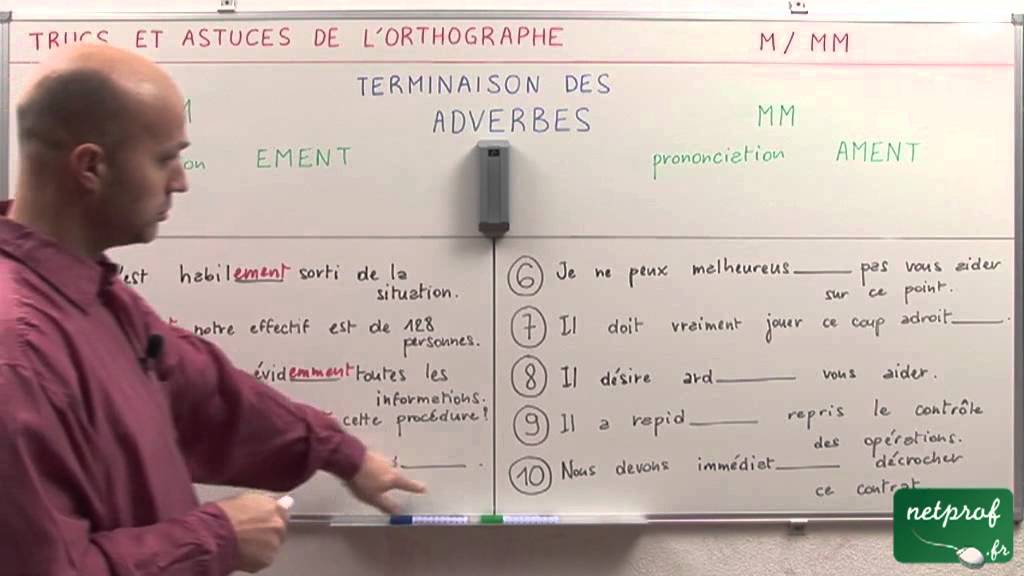 TRUCS ET ASTUCES DE L'ORTHOGRAPHE
M / MM
TERMINAISON DES
ADVERBES
EMENT
MM
prononciation AMENT
habilement sorti de la
situation.
notre effectif est de 128
personnes.
évidemment toutes les
informations.
cette procédure!
______ .
⑥ Je ne peux malheureus______ pas vous aider
sur ce point.
⑦ Il doit vraiment jouer ce coup adroit______.
⑧ Il désire ard______ vous aider.
⑨ Il a rapid______ repris le contrôle
des opérations.
⑩ Nous devons immédiat______ décrocher
ce contrat
netprof
.fr